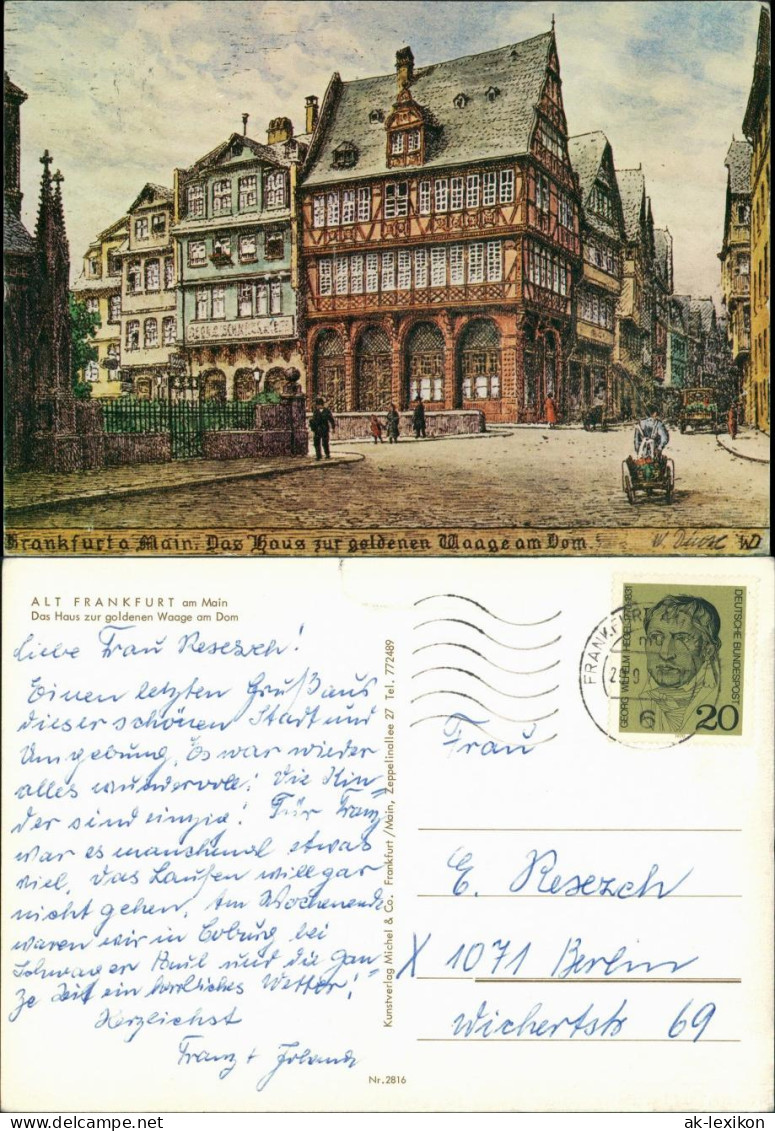 Frankfurt a Main. Das Haus zur goldenen Waage am Dom.
ALT FRANKFURT am Main
Das Haus zur goldenen Waage am Dom
Liebe Frau Resezch!
Einen letzten Gruß aus
dieser schönen Stadt und
Umgebung. Es war wieder
alles wundervoll! Die Kin-
der sind einzig! Für Franz
war es manchmal etwas
viel, das Laufen will gar
nicht gehen. Am Wochenende
waren wir in Coburg bei
Schwager Paul und die gan-
ze Zeit ein herrliches Wetter!
Herzlichst
Franz +
Kunstverlag Michel & Co. Frankfurt/Main, Zeppelinallee 27 Tel. 772489
Nr. 2816
FRANKFURT
6
DEUTSCHE BUNDESPOST
GEORG WILHELM HEGEL 1770-1831
20
Frau
E. Resezch
X 1071 Berlin
Wichertstr 69
www.ansichtskarten-lexikon.de
ak-lexikon